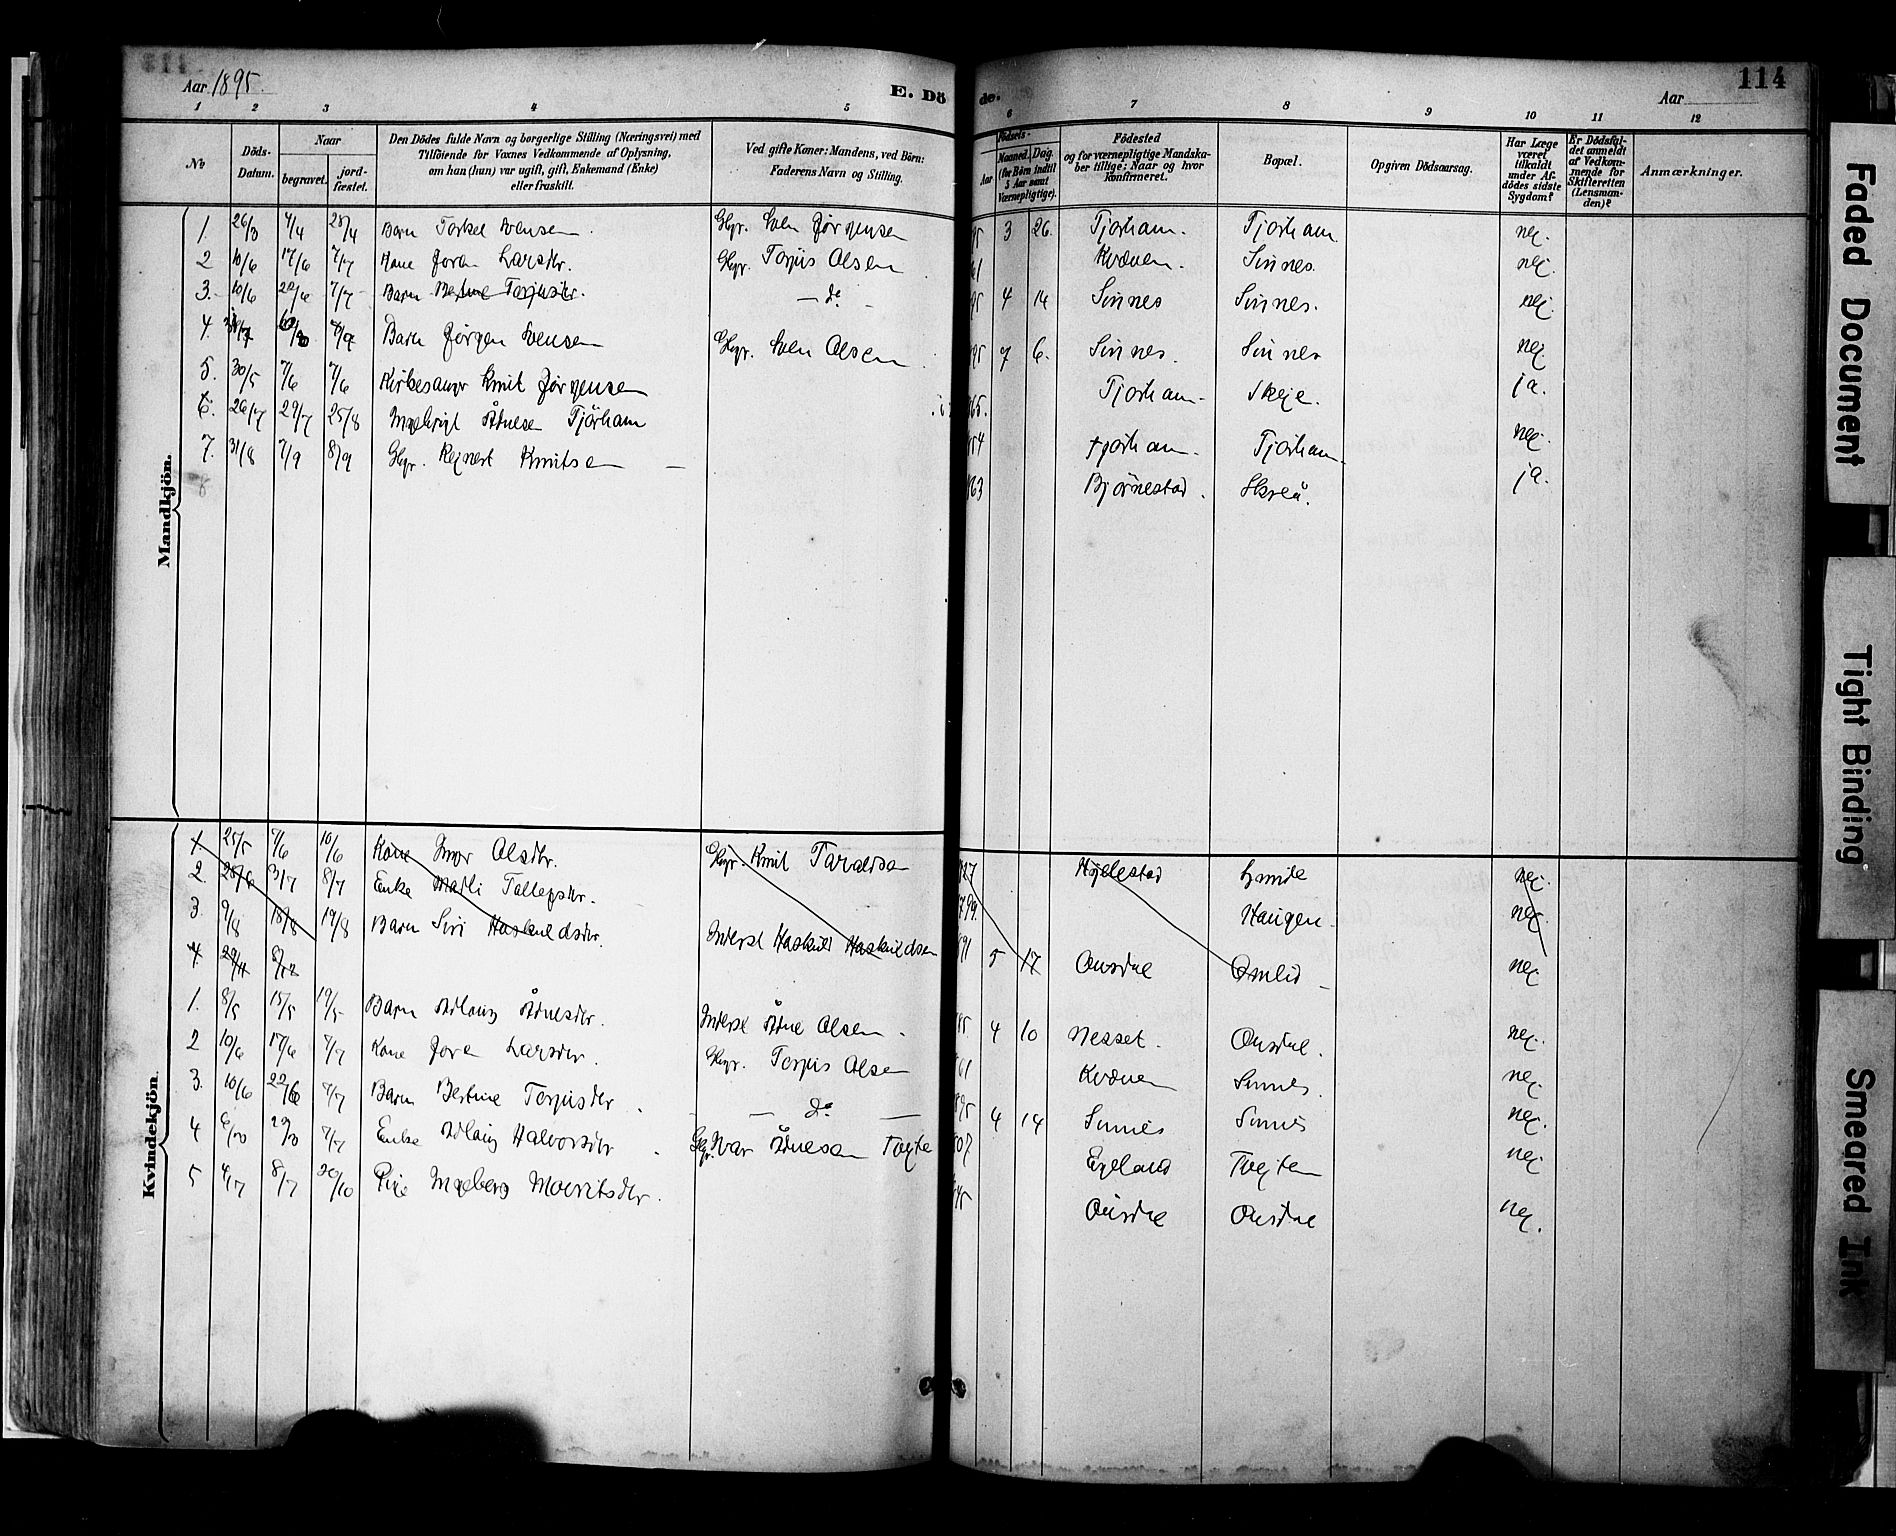 113
Aar 1895.
E. Döde.
Aar
114
1 2 3 4 5 6 7 8 9 10 11 12
No
Döds-Datum.
Naar
begravet.
jord-fæstet.
Den Dödes fulde Navn og borgerlige Stilling (Næringsvei) med Tilföiende for Voxnes Vedkommende af Oplysning, om han (hun) var ugift, gift, Enkemand (Enke) eller fraskilt.
Ved gifte Koner: Mandens, ved Börn: Faderens Navn og Stilling.
Födsels-
Aar
Maaned. Dag.
(for Börn indtil 5 Aar samt Værnepligtige).
Födested og for værnepligtige Mandskaber tillige: Naar og hvor konfirmeret.
Bopæl.
Opgiven Dödsaarsag.
Har Læge været tilkaldt under Afdödes sidste Sygdom?
Er Dödsfaldet anmeldt af Vedkommende for Skifteretten (Lensmanden)?
Anmærkninger.
Mandkjön.
1. 26/3 4/4 28/4 Barn Torkel Svensen. Gbgr. Sven Jørgensen 95 3 26. Tjorham. Tjorham nej.
2 10/6 17/6 7/7 Kone Joren Larsdtr. Gbgr. Torjus Olsen 61 Kvæven. Sinnes. nej.
3. 10/6 22/6 7/7 Barn Bertine Torjusdtr. — do — 95 4 14 Sinnes Sinnes. nej.
4. Barn Jørgen Svensen Gbgr. Sven Olsen 95 7 6. Sinnes. Sinnes nej
5. 30/5 7/6 7/6 Kirkesanger Knut Jørgensen 65. Tjorham Skeje. ja.
6. 26/7 29/7 25/8 Ingebrigt Ådnesen Tjörham 54 Tjorham. Tjorham nej.
7. 31/8 7/9 8/9 Gbgr. Rejnert Knutsen — 63 Bjørnestad. Skreå. ja.
8
Kvindekjön.
1. 25/5 7/6 10/6 Kone Inger Olsdtr. Gbgr. Knut Taraldsen 27 Hjelestad nej.
2. 28/6 3/7 8/7 Enke Malli Tallegsdtr. 799. Haugen. nej.
3. 9/8 18/8 19/8 Barn Siri Haskueldsdtr. Inderst Haskuld Haskueldsen 91 5 17 Ousdal Omlid nej
4. 29/11 8/12
1. 8/5 15/5 19/5 Barn Adlaug Ådnesdtr. Inderst Ådne Olsen. 95. 4 10 Nesset. Ousdal. nej.
2 10/6 17/6 7/7 Kone Joren Larsdtr. Gbgr. Torjus Olsen 61 Kvæven Sinnes. nej.
3. 10/6 22/6 7/7 Barn Bertine Torjusdtr. — do — 895 4 14 Sinnes Sinnes nej.
4 7/7 Enke Adlaug Halvorsdtr. Gbgr. Ivar Ådnesen Tvejte 807 Egeland Tvejten nej
5 4/7 8/7 20/10 Pige Ingeborg Mouritsdtr. 45 Ousdal Ousdal nej.
Faded Document
Tight Binding
Smeared Ink